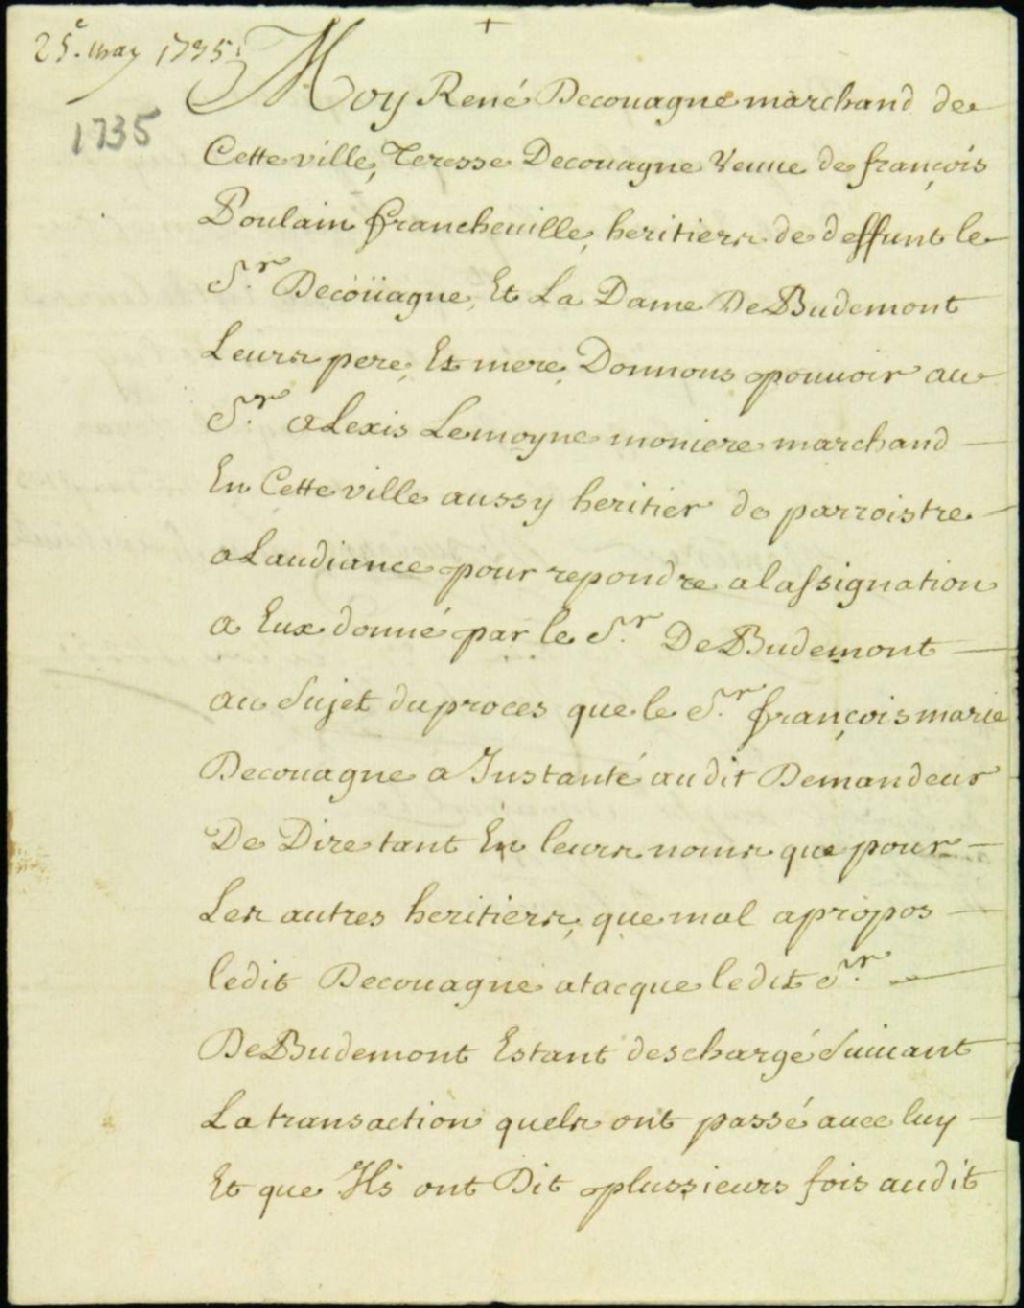 25.e may 1735
1735
Moy René Decouagne marchand de
Cette ville, Teresse Decouagne Veuue de françois
Poulain francheuille, heritiers de deffunt le
S.r Decoüagne, Et La Dame De Budemont
Leurs pere, Et mere, Donnons pouuoir au
S.r aLexis Lemoyne moniere marchand
En Cette ville aussy heritier de parroistre
a Laudiance pour repondre a lassignation
a Eux donné par le S.r De Budemont
au Sujet du proces que le S.r françois marie
Decouagne a Instanté audit Demandeur
De Dire tant En leurs noms que pour
Les autres heritiers, que mal apropos
ledit Decouagne atacque ledit S.r
De Budemont Estant deschargé Suiuant
La transaction quels ont passé auec luy
Et que Ils ont Dit plussieurs fois audit